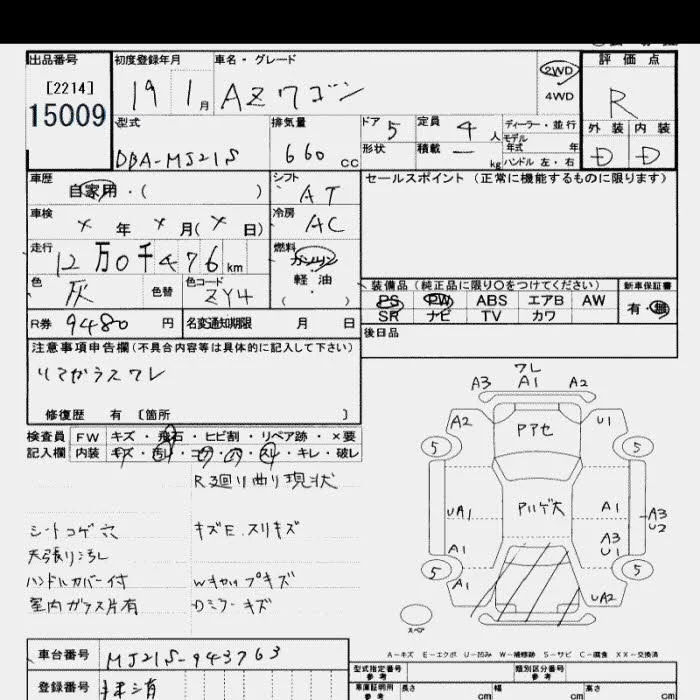 出品番号
[2214]
15009
初度登録年月
19 1月
車名・グレード
AZワゴン
2WD
4WD
評価点
R
外装 内装
D D
型式
DBA-MJ21S
排気量
660 cc
ドア 5
形状
定員 4 人
積載 ー kg
ディーラー・並行
モデル
年式 年
ハンドル 左・右
車歴
自家用・( )
シフト
AT
セールスポイント (正常に機能するものに限ります)
車検
× 年 × 月( × 日)
冷房
AC
走行
12万0千476 km
燃料
ガソリン
軽油
( ・ )
色
灰
色替
色コード
ZY4
装備品 (純正品に限り○をつけてください)
PS PW ABS エアB AW
SR ナビ TV カワ
新車保証書
有・無
R券 9480 円
名変通知期限 月 日
後日品
注意事項申告欄 (不具合内容等は具体的に記入して下さい)
リアガラスワレ
修復歴 有 〔箇所 〕
検査員
記入欄
FW キズ・飛石・ヒビ割・リペア跡・×要
内装 キズ・汚レ・コゲ・穴・スレ・キレ・破レ
R廻り曲り現状
シートコゲ穴 キズE.スリキズ
天張り汚レ
ハンドルカバー付 Wキャップキズ
室内ガラス片有 Dミラーキズ
ワレ
A3 A1 A2
A2 Pアセ U1
5 5
UA1 Pルゲ大 A1 A3
U2
A3
A1 U1
5 5
A1 UA2
スペア
A－キズ E－エクボ U－凹み W－補修跡 S－サビ C－腐食 XX－交換済
車台番号 MJ21S-943763
登録番号 抹消
型式指定番号
参考
類別区分番号
参考
車庫証明用
参考
長さ cm
幅 cm
高さ cm